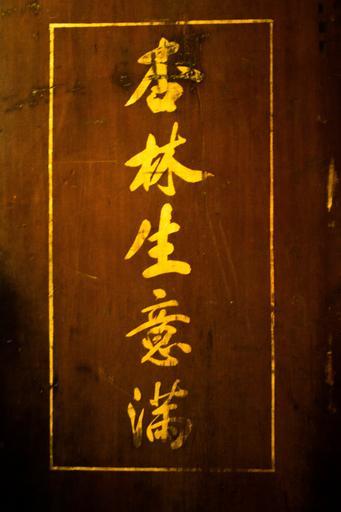 杏林生意满